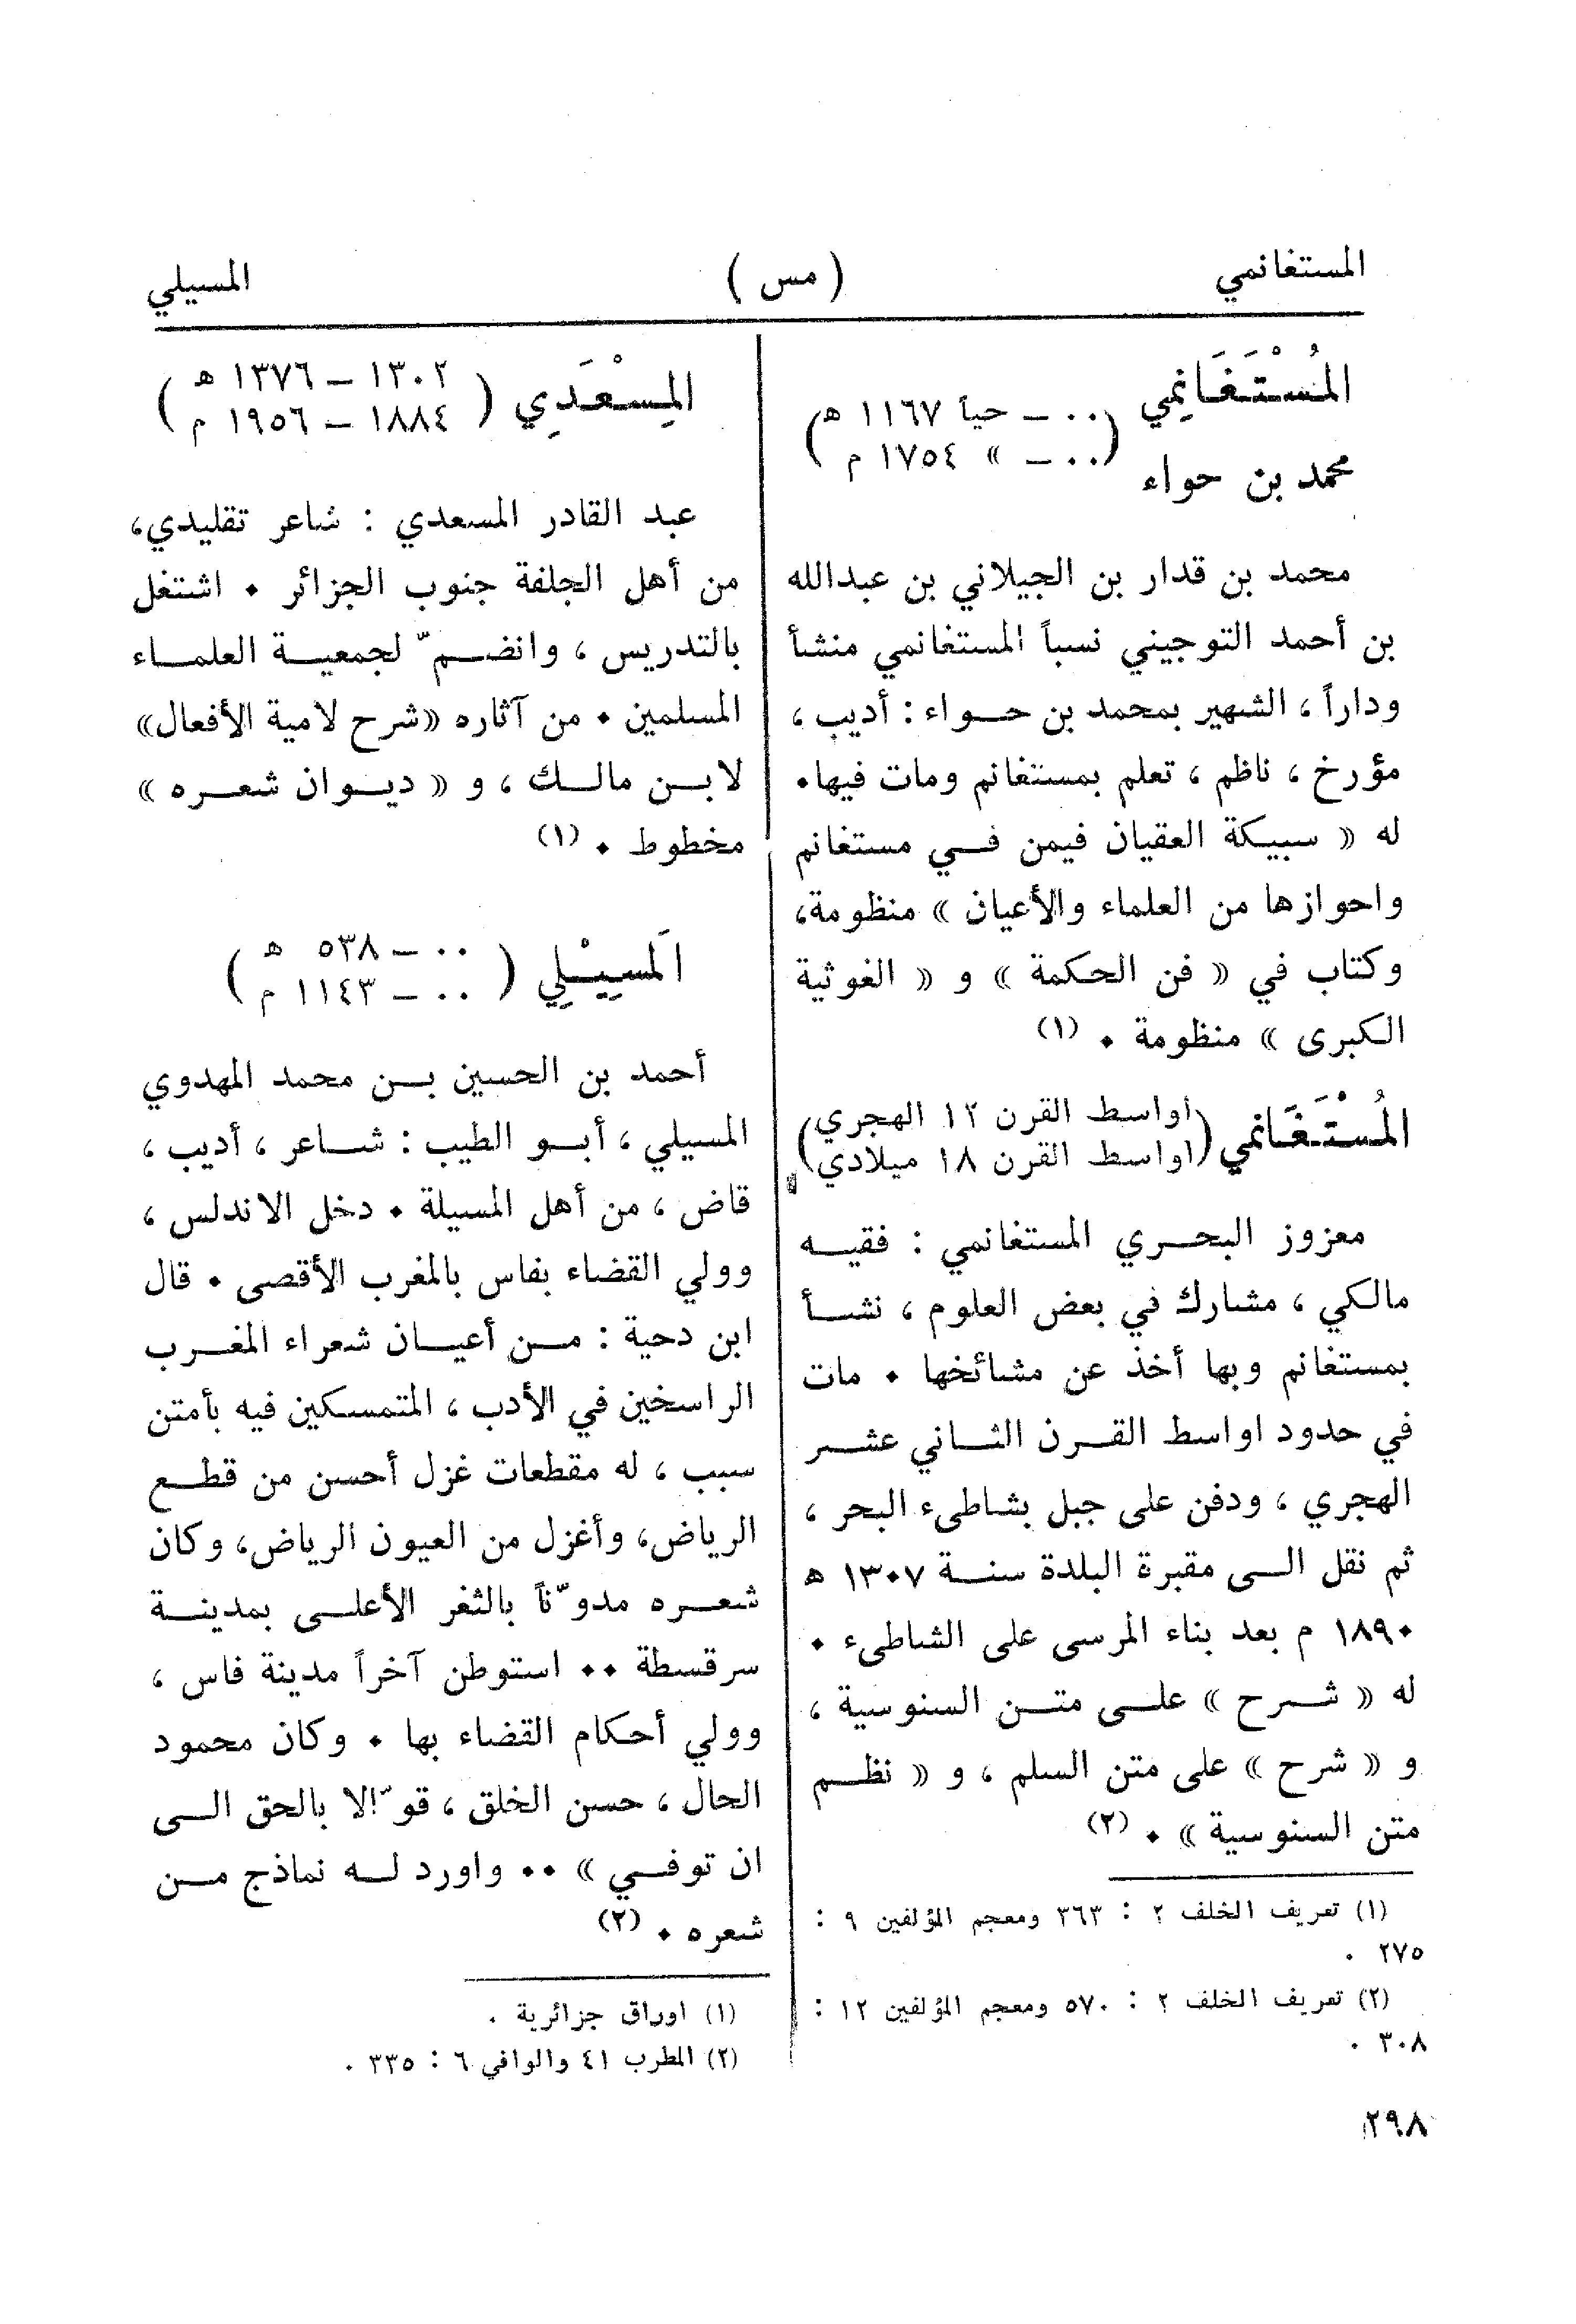 المستغانمي
( مس )
المسيلي
المُسْتَغَانِمي
(٠٠ – حياً ١١٦٧ هـ)
(٠٠ – » ١٧٥٤ م)
محمد بن حواء
محمد بن قدار بن الجيلاني بن عبدالله
بن أحمد التوجيني نسباً المستغانمي منشأ
وداراً ، الشهير بمحمد بن حواء : أديب ،
مؤرخ ، ناظم ، تعلم بمستغانم ومات فيها٠
له « سبيكة العقيان فيمن في مستغانم
واحوازها من العلماء والأعيان » منظومة،
وكتاب في « فن الحكمة » و « الغوثية
الكبرى » منظومة ٠ (١)
المُسْتَغَانمي
(اواسط القرن ١٢ الهجري)
(اواسط القرن ١٨ ميلادي)
معزوز البحري المستغانمي : فقيه
مالكي ، مشارك في بعض العلوم ، نشأ
بمستغانم وبها أخذ عن مشائخها ٠ مات
في حدود اواسط القرن الثاني عشر
الهجري ، ودفن على جبل بشاطىء البحر ،
ثم نقل الى مقبرة البلدة سنة ١٣٠٧ هـ
١٨٩٠ م بعد بناء المرسى على الشاطىء ٠
له « شرح » على متن السنوسية ،
و « شرح » على متن السلم ، و « نظم
متن السنوسية » ٠ (٢)
(١) تعريف الخلف ٢ : ٣٦٣ ومعجم المؤلفين ٩ :
٢٧٥ ٠
(٢) تعريف الخلف ٢ : ٥٧٠ ومعجم المؤلفين ١٢ :
٣٠٨ ٠
المِسْعَدِي
( ١٣٠٢ – ١٣٧٦ هـ )
( ١٨٨٤ – ١٩٥٦ م )
عبد القادر المسعدي : شاعر تقليدي،
من أهل الجلفة جنوب الجزائر ٠ اشتغل
بالتدريس ، وانضمّ لجمعية العلماء
المسلمين ٠ من آثاره «شرح لامية الأفعال»
لابن مالك ، و « ديوان شعره »
مخطوط ٠ (١)
اَلمسِيْلِي
( ٠٠ – ٥٣٨ هـ )
( ٠٠ – ١١٤٣ م )
أحمد بن الحسين بن محمد المهدوي
المسيلي ، أبو الطيب : شاعر ، أديب ،
قاض ، من أهل المسيلة ٠ دخل الاندلس ،
وولي القضاء بفاس بالمغرب الأقصى ٠ قال
ابن دحية : من أعيان شعراء المغرب
الراسخين في الأدب ، المتمسكين فيه بأمتن
سبب ، له مقطعات غزل أحسن من قطع
الرياض، وأغزل من العيون الرياض، وكان
شعره مدوّناً بالثغر الأعلى بمدينة
سرقسطة ٠٠ استوطن آخراً مدينة فاس ،
وولي أحكام القضاء بها ٠ وكان محمود
الحال ، حسن الخلق ، قوّالا بالحق الى
ان توفي » ٠٠ واورد له نماذج من
شعره ٠ (٢)
(١) اوراق جزائرية ٠
(٢) المطرب ٤١ والوافي ٦ : ٣٣٥ ٠
٢٩٨